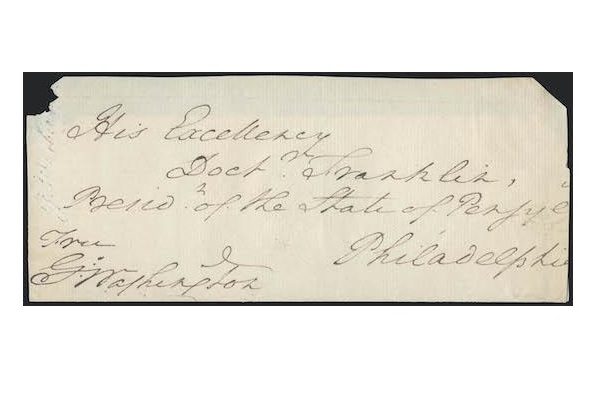 His Excellency
Doctr. Franklin,
Presidn. of the State of Pensyla
Free
G:Washington
Philadelphi